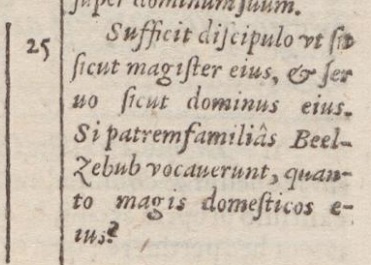 ſuper dominum ſuum.
25 Sufficit diſcipulo vt ſit
ſicut magiſter eius, & ſer
uo ſicut dominus eius.
Si patremfamiliâs Beel-
Zebub vocauerunt, quan-
to magis domeſticos e-
ius?